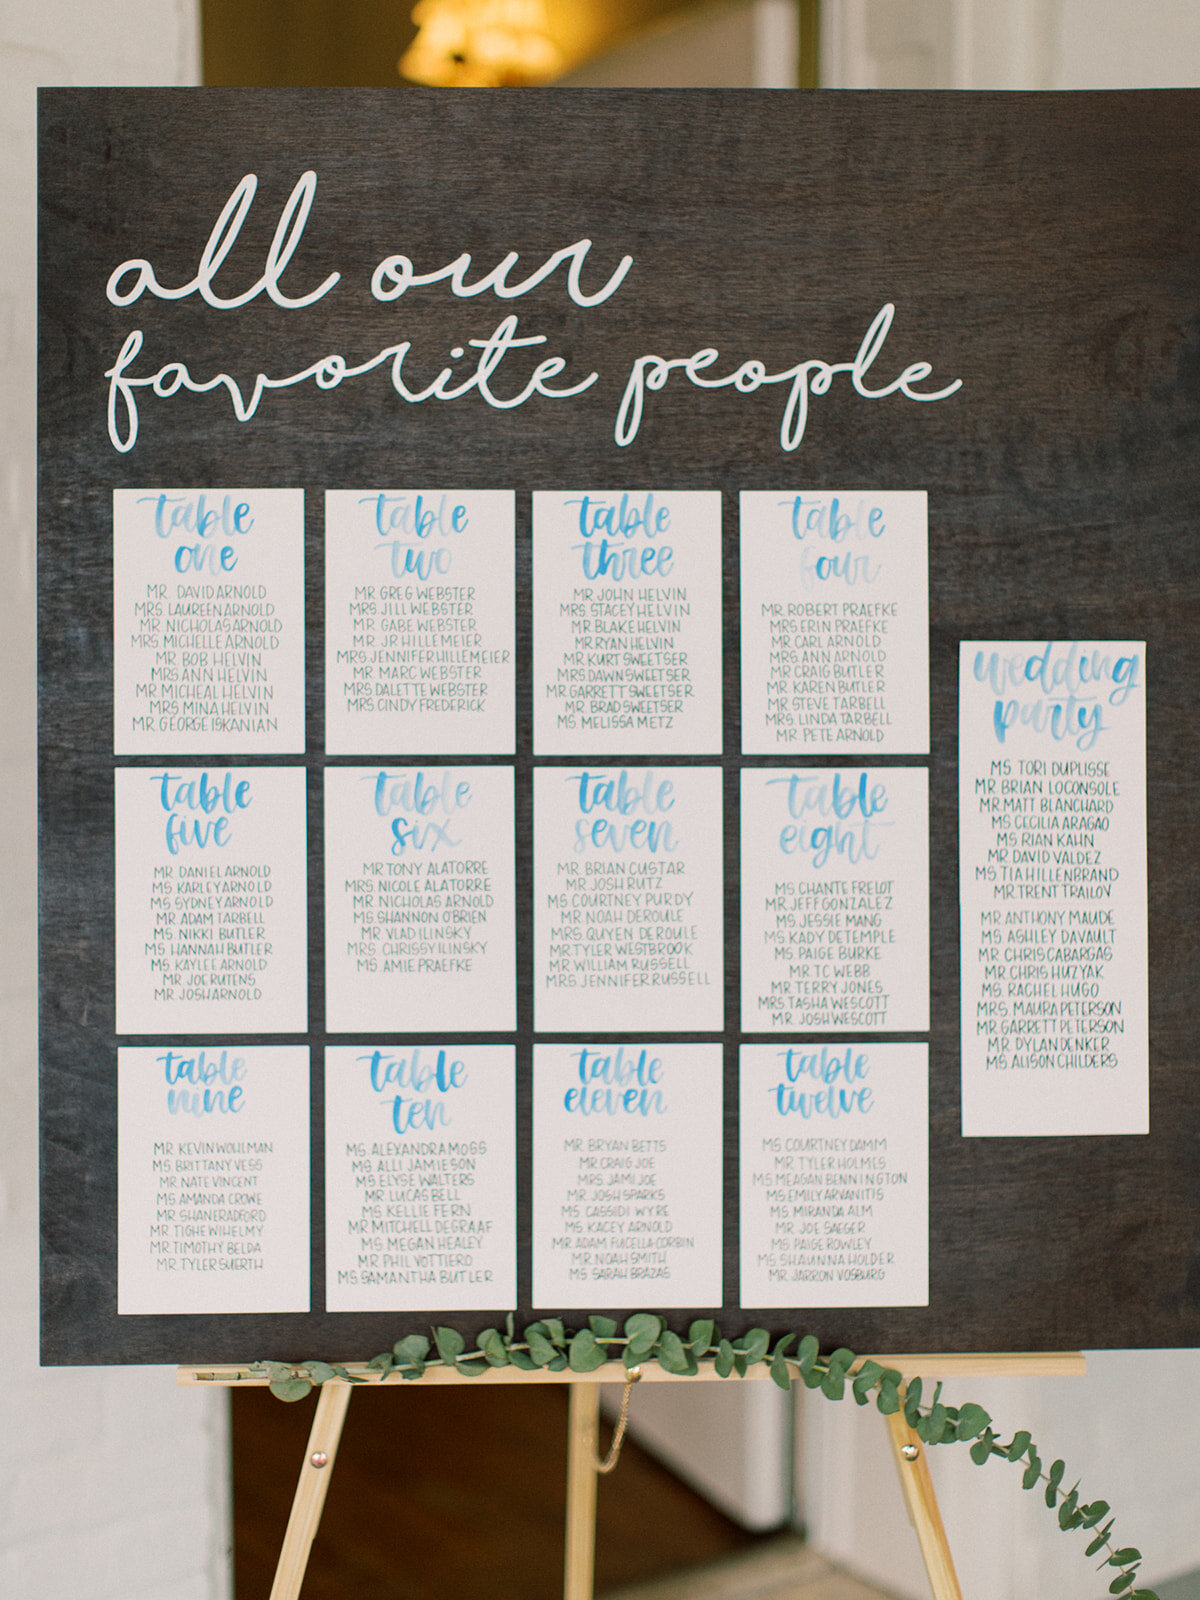 all our
favorite people
table
one
MR. DAVID ARNOLD
MRS. LAUREEN ARNOLD
MR. NICHOLAS ARNOLD
MRS. MICHELLE ARNOLD
MR. BOB HELVIN
MRS ANN HELVIN
MR. MICHEAL HELVIN
MRS MINA HELVIN
MR. GEORGE ISKANIAN
table
two
MR GREG WEBSTER
MRS. JILL WEBSTER
MR. GABE WEBSTER
MR. JR HILLEMEIER
MRS. JENNIFER HILLEMEIER
MR. MARC WEBSTER
MRS. DALETTE WEBSTER
MRS. CINDY FREDERICK
table
three
MR. JOHN HELVIN
MRS. STACEY HELVIN
MR. BLAKE HELVIN
MR. RYAN HELVIN
MR. KURT SWEETSER
MRS DAWN SWEETSER
MR. GARRETT SWEETSER
MR. BRAD SWEETSER
MS. MELISSA METZ
table
four
MR. ROBERT PRAEFKE
MRS. ERIN PRAEFKE
MR. CARL ARNOLD
MRS. ANN ARNOLD
MR. CRAIG BUTLER
MR. KAREN BUTLER
MR STEVE TARBELL
MRS. LINDA TARBELL
MR. PETE ARNOLD
table
five
MR. DANIEL ARNOLD
MS KARLEY ARNOLD
MS SYDNEY ARNOLD
MR. ADAM TARBELL
MS. NIKKI BUTLER
MS HANNAH BUTLER
MS. KAYLEE ARNOLD
MR. JOE RUTENS
MR. JOSH ARNOLD
table
six
MR TONY ALATORRE
MRS. NICOLE ALATORRE
MR. NICHOLAS ARNOLD
MS SHANNON O'BRIEN
MR. VLAD ILINSKY
MRS CHRISSY ILINSKY
MS. AMIE PRAEFKE
table
seven
MR. BRIAN CUSTAR
MR. JOSH RUTZ
MS COURTNEY PURDY
MR. NOAH DEROULE
MRS. QUYEN DEROULE
MR. TYLER WESTBROOK
MR. WILLIAM RUSSELL
MRS. JENNIFER RUSSELL
table
eight
MS CHANTE FRELOT
MR. JEFF GONZALEZ
MS. JESSIE MANG
MS. KADY DETEMPLE
MS. PAIGE BURKE
MR. TC WEBB
MR. TERRY JONES
MRS TASHA WESCOTT
MR. JOSH WESCOTT
table
nine
MR. KEVIN WOHLMAN
MS BRITTANY VESS
MR. NATE VINCENT
MS. AMANDA CROWE
MR. SHANE RADFORD
MR. TIGHE WIHELMY
MR. TIMOTHY BELDA
MR. TYLER SUERTH
table
ten
MS. ALEXANDRA MOSS
MS. ALLI JAMIESON
MS. ELYSE WALTERS
MR. LUCAS BELL
MS. KELLIE FERN
MR MITCHELL DEGRAAF
MS. MEGAN HEALEY
MR. PHIL VOTTIERO
MS. SAMANTHA BUTLER
table
eleven
MR. BRYAN BETTS
MR. CRAIG JOE
MRS. JAMI JOE
MR. JOSH SPARKS
MS. CASSIDI WYRE
MS. KACEY ARNOLD
MR. ADAM PUCELLA-CORBIN
MR. NOAH SMITH
MS. SARAH BRAZAS
table
twelve
MS COURTNEY DAMM
MR. TYLER HOLMES
MS MEAGAN BENNINGTON
MS EMILY ARVANITIS
MS. MIRANDA ALM
MR. JOE SAEGER
MS. PAIGE ROWLEY
MS SHAUNNA HOLDER
MR. JARRON VOSBURG
wedding
party
MS. TORI DUPLISSE
MR. BRIAN LOCONSOLE
MR. MATT BLANCHARD
MS. CECILIA ARAGAO
MS RIAN KAHN
MR. DAVID VALDEZ
MS TIA HILLENBRAND
MR. TRENT TRAILOV
MR. ANTHONY MAUDE
MS. ASHLEY DAVAULT
MR. CHRIS CABARGAS
MR. CHRIS HUZYAK
MS. RACHEL HUGO
MRS. MAURA PETERSON
MR. GARRETT PETERSON
MR. DYLAN DENKER
MS. ALISON CHILDERS